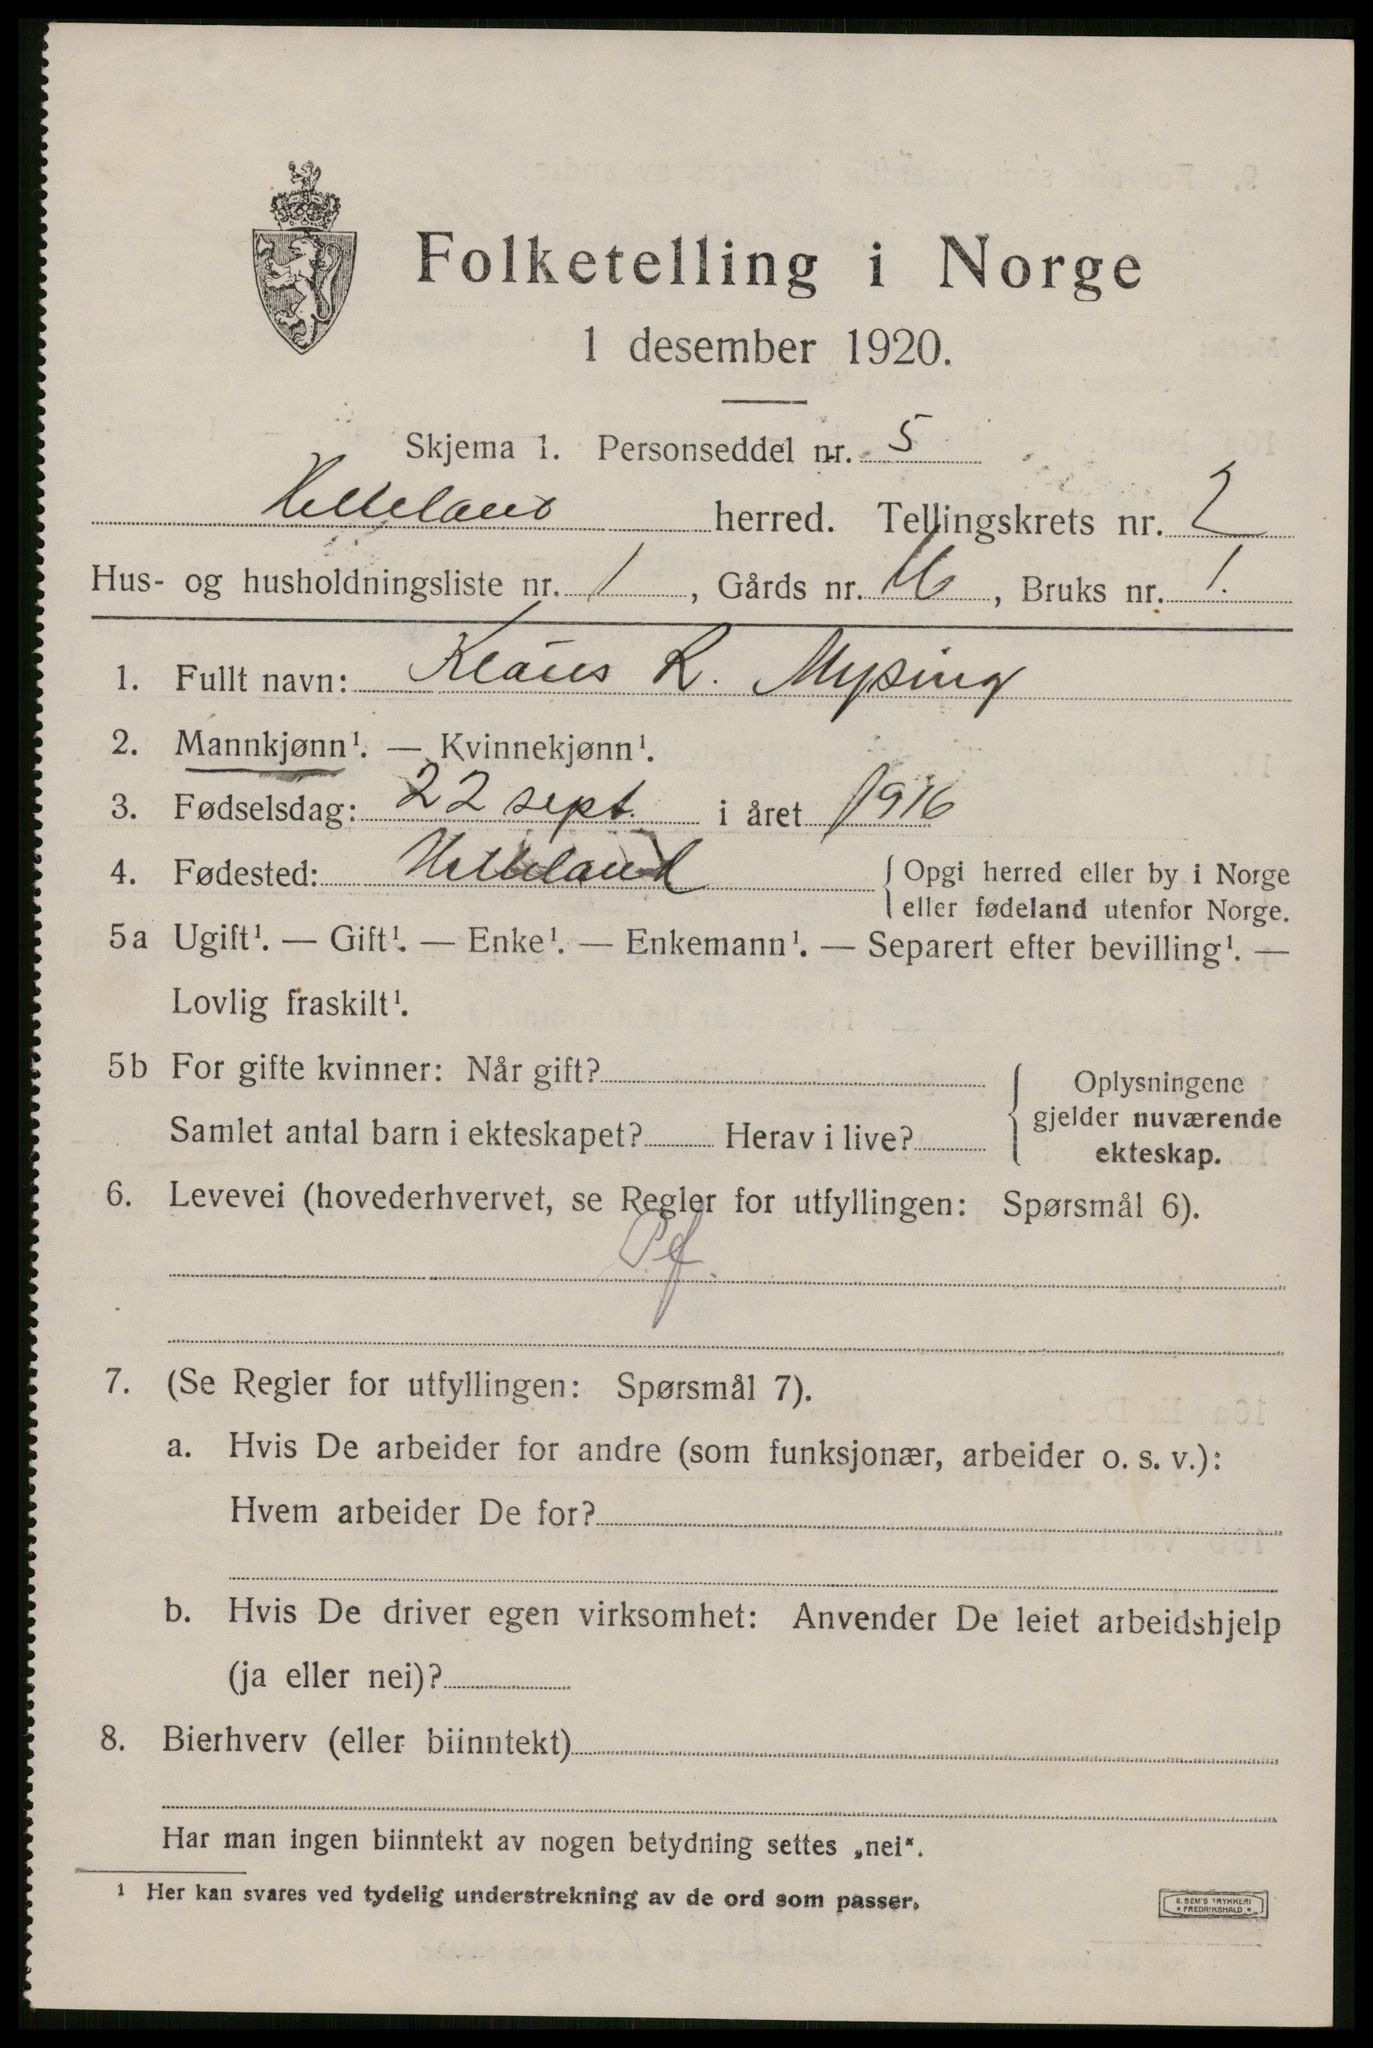 Folketelling i Norge
1 desember 1920.
Skjema 1. Personseddel nr. 5
Helleland herred. Tellingskrets nr. 2
Hus- og husholdningsliste nr. 1, Gårds nr. 16, Bruks nr. 1.
1. Fullt navn: Klaus R. Mysing
2. Mannkjønn¹. — Kvinnekjønn¹.
3. Fødselsdag: 22 sept. i året 1916
4. Fødested: Helleland { Opgi herred eller by i Norge
eller fødeland utenfor Norge.
5a Ugift¹. — Gift¹. — Enke¹. — Enkemann¹. — Separert efter bevilling¹. —
Lovlig fraskilt¹.
5b For gifte kvinner: Når gift?
Samlet antal barn i ekteskapet? Herav i live?
{ Oplysningene
gjelder nuværende
ekteskap.
6. Levevei (hovederhvervet, se Regler for utfyllingen: Spørsmål 6).
P.f.
7. (Se Regler for utfyllingen: Spørsmål 7).
a. Hvis De arbeider for andre (som funksjonær, arbeider o. s. v.):
Hvem arbeider De for?
b. Hvis De driver egen virksomhet: Anvender De leiet arbeidshjelp
(ja eller nei)?
8. Bierhverv (eller biinntekt)
Har man ingen biinntekt av nogen betydning settes „nei“.
¹ Her kan svares ved tydelig understrekning av de ord som passer.
E. SEM'S TRYKKERI
* FREDRIKSHALD *